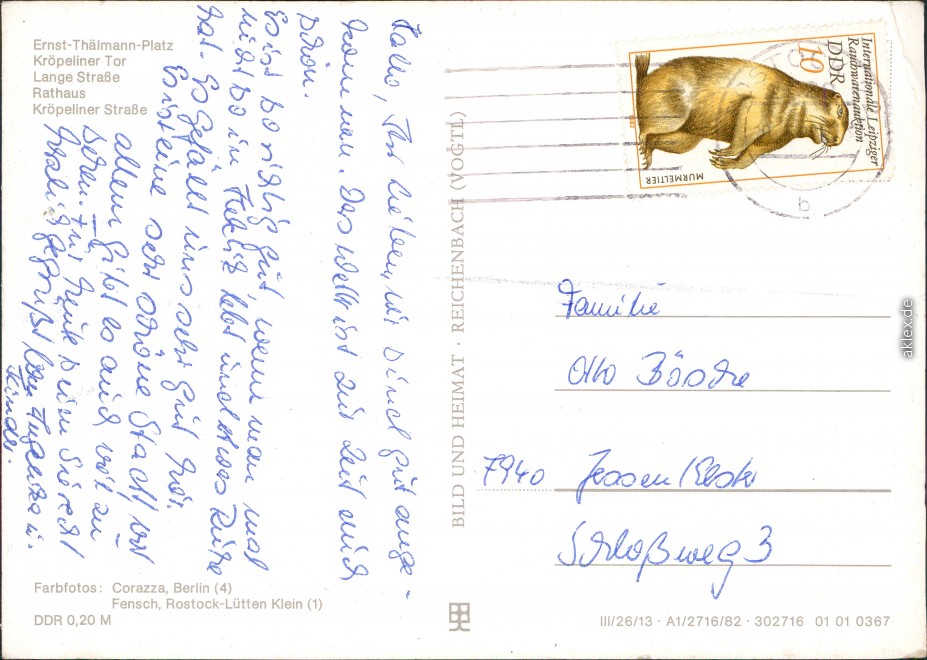 Ernst-Thälmann-Platz
Kröpeliner Tor
Lange Straße
Rathaus
Kröpeliner Straße
Hallo, Ihr Lieben, wir sind gut ange-
kommen. Das Wetter ist zur Zeit auch
schön.
Es ist so richtig gut, wenn man mal
nicht so in Hektik lebt und etwas Ruhe
hat. Es gefällt uns sehr gut hier.
Es ist eine sehr schöne Stadt, vor
allem gibt es auch viel zu
sehen. Für heute seim
herzlich gegrüßt von u.
Kinder.
Farbfotos: Corazza, Berlin (4)
Fensch, Rostock-Lütten Klein (1)
DDR 0,20 M
BILD UND HEIMAT · REICHENBACH (VOGTL)
Internationale Leipziger
Rauchwarenauktion
DDR
10
MURMELTIER
b
Familie
Otto Bösche
7940 Jessen/Elster
Schloßweg 3
III/26/13 · A1/2716/82 · 302716 01 01 0367
aklex.de